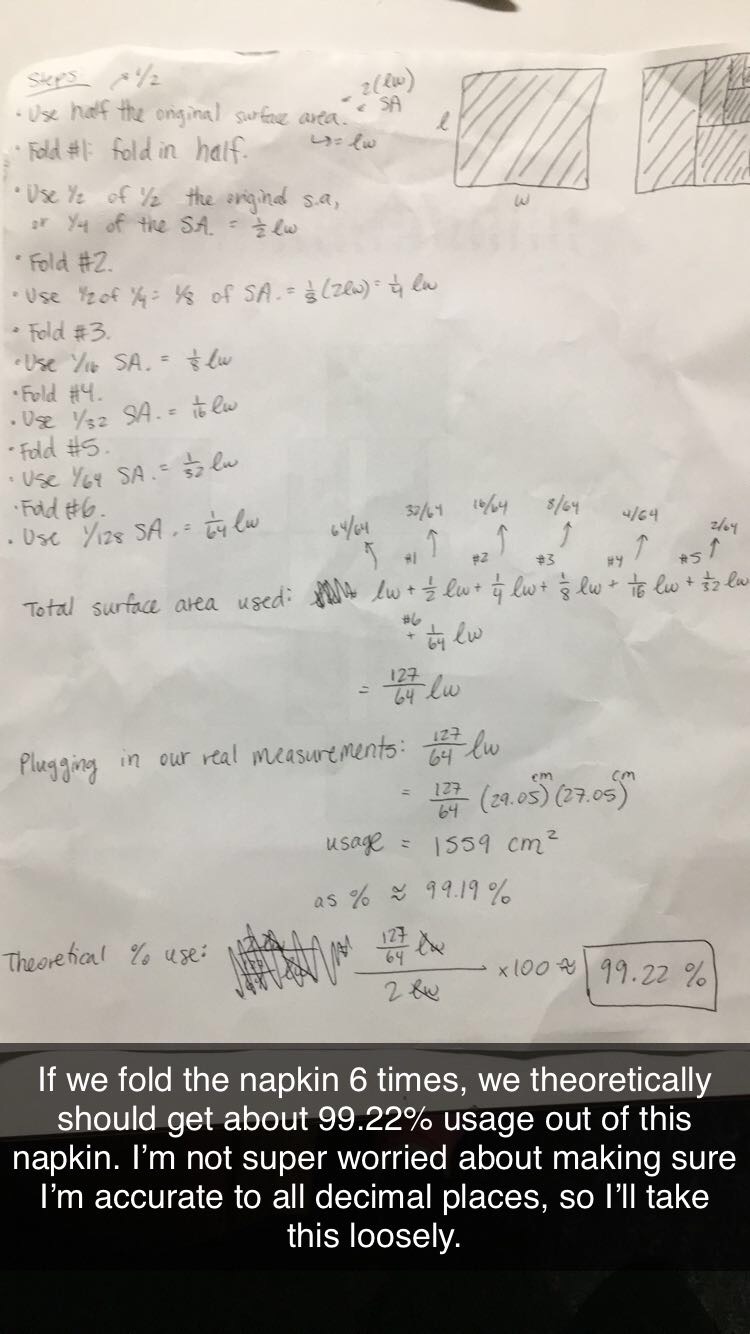 Steps → 1/2
• Use half the original surface area. 2(lw) SA
↳ = lw
• Fold #1: fold in half.
• Use 1/2 of 1/2 the original s.a,
or 1/4 of the SA. = 1/2 lw
• Fold #2.
• Use 1/2 of 1/4 = 1/8 of SA. = 1/8 (2lw) = 1/4 lw
• Fold #3.
• Use 1/16 SA. = 1/8 lw
• Fold #4.
• Use 1/32 SA. = 1/16 lw
• Fold #5.
• Use 1/64 SA. = 1/32 lw
• Fold #6.
• Use 1/128 SA. = 1/64 lw
l
w
64/64 32/64 16/64 8/64 4/64 2/64
#1 #2 #3 #4 #5
Total surface area used: lw + 1/2 lw + 1/4 lw + 1/8 lw + 1/16 lw + 1/32 lw
#6
+ 1/64 lw
= 127/64 lw
Plugging in our real measurements: 127/64 lw
= 127/64 (29.05 cm)(27.05 cm)
usage = 1559 cm²
as % ≈ 99.19 %
Theoretical % use: 127/64 lw / 2 lw × 100 ≈ 99.22 %
If we fold the napkin 6 times, we theoretically
should get about 99.22% usage out of this
napkin. I’m not super worried about making sure
I’m accurate to all decimal places, so I’ll take
this loosely.